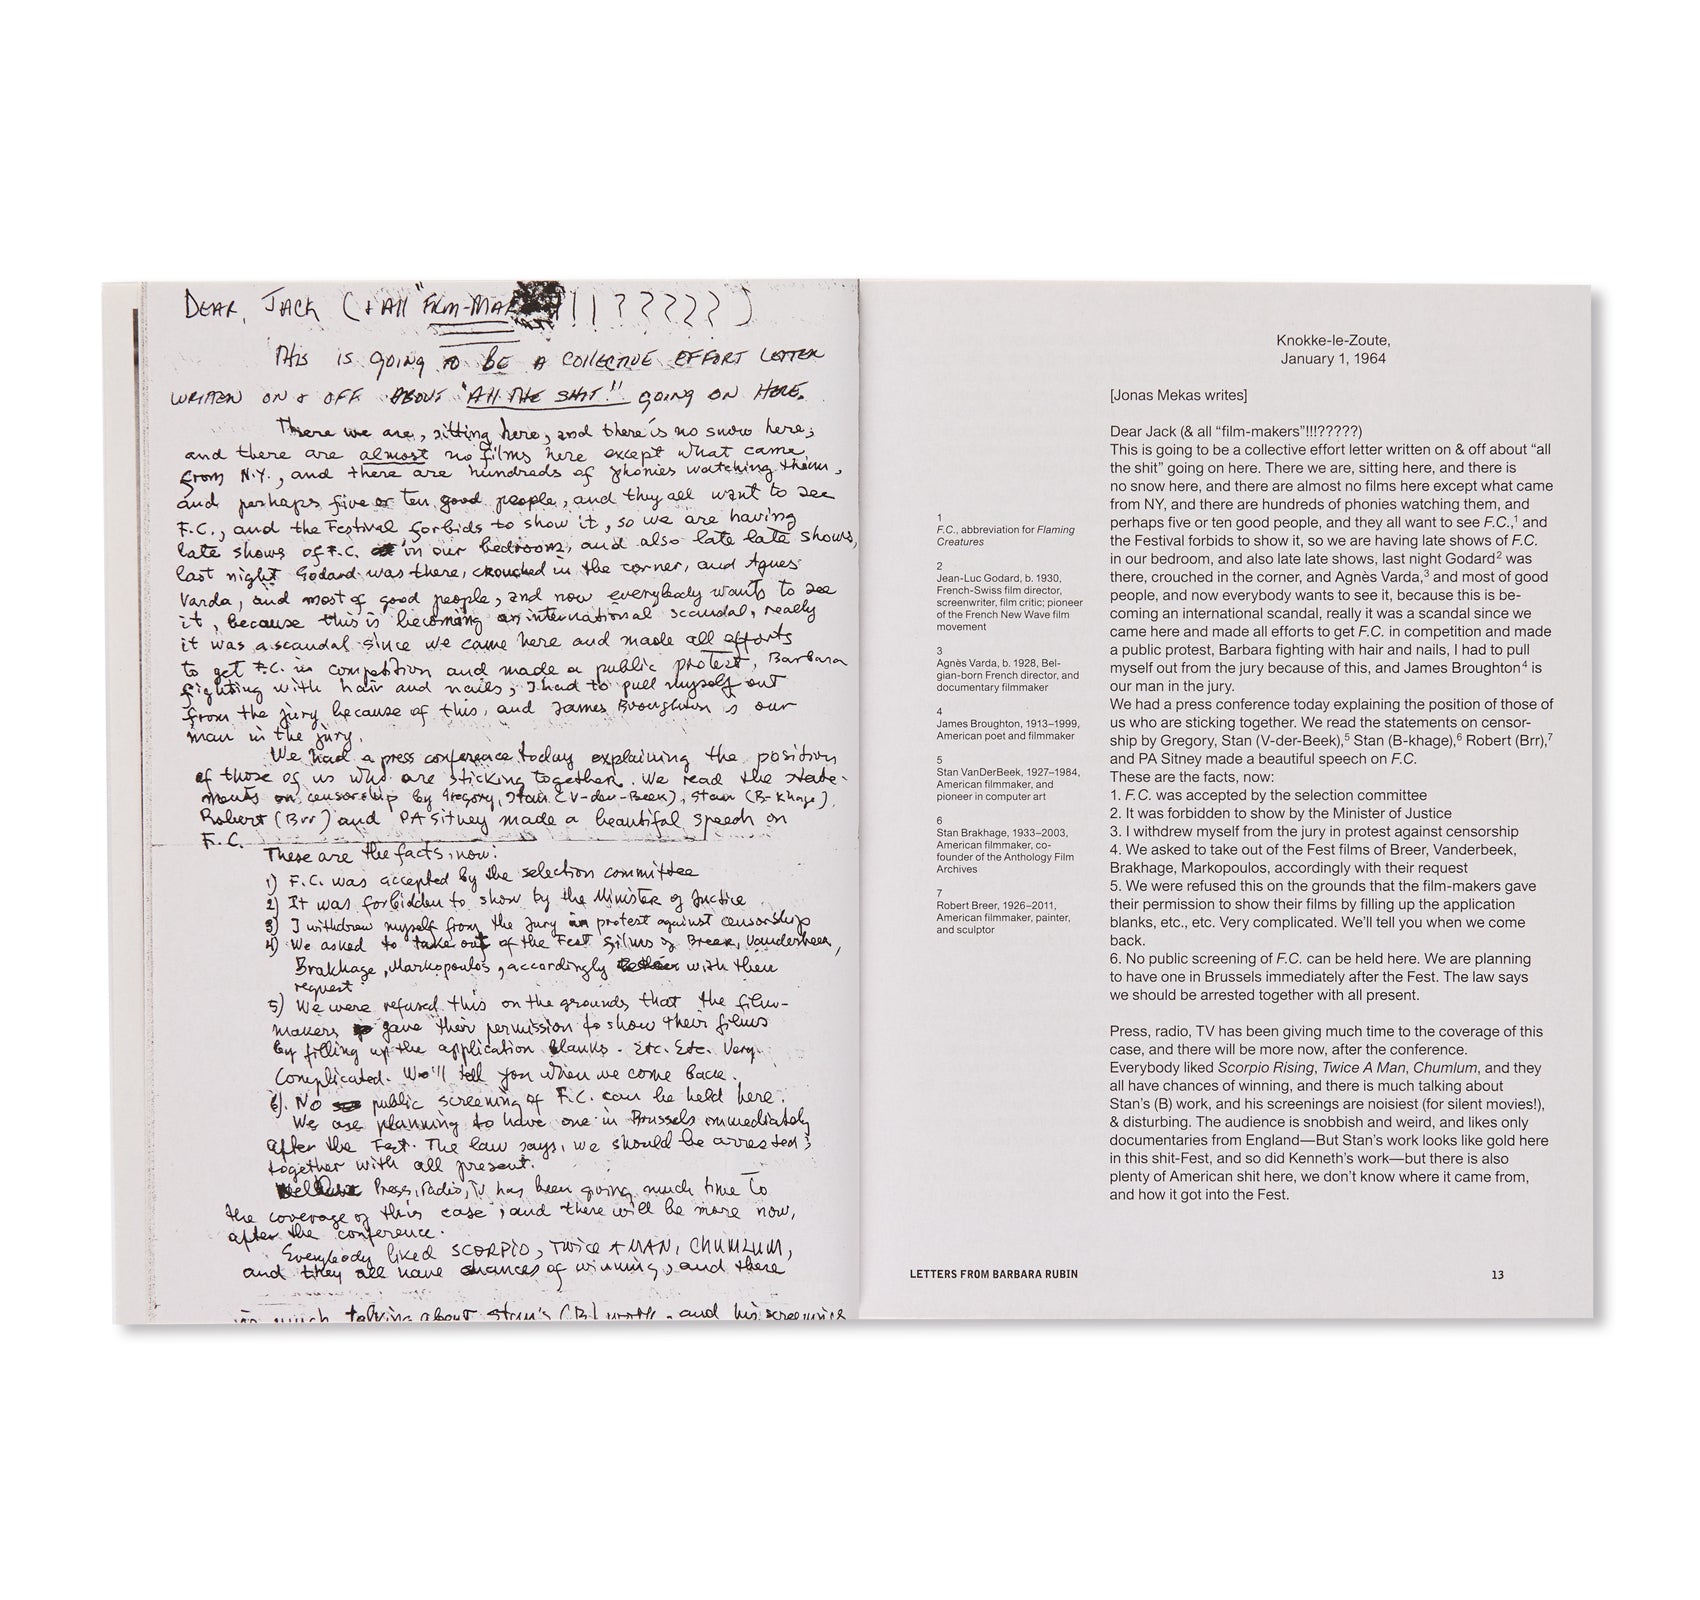 DEAR, JACK (+ All "FILM-MA !!!?????)
THIS IS GOING TO BE A COLLECTIVE EFFORT LETTER
WRITTEN ON & OFF ABOUT "All THE SHIT!" GOING ON HERE.
There we are, sitting here, and there is no snow here;
and there are almost no films here except what came
from N.Y., and there are hundreds of phonies watching them,
and perhaps five or ten good people, and they all want to see
F.C., and the Festival forbids to show it, so we are having
late shows of F.C. in our bedroom, and also late late shows,
last night Godard was there, crouched in the corner, and Agnes
Varda, and most of good people, and now everybody wants to see
it, because this is becoming an international scandal, really
it was a scandal since we came here and made all efforts
to get F.C. in competition and made a public protest, Barbara
fighting with hair and nails, I had to pull myself out
from the jury because of this, and James Broughton is our
man in the jury.
We had a press conference today explaining the position
of those of us who are sticking together. We read the state-
ments on censorship by Gregory, Stan (V-der-Beek), Stan (B-khage),
Robert (Brr) and PA Sitney made a beautiful speech on
F.C.
These are the facts, now:
1) F.C. was accepted by the selection committee
2) It was forbidden to show by the Minister of Justice
3) I withdrew myself from the jury in protest against censorship
4) We asked to take out of the Fest films of Breer, Vanderbeek,
Brakhage, Markopoulos, accordingly with their
request
5) We were refused this on the grounds that the film-
makers gave their permission to show their films
by filling up the application blanks. Etc. Etc. Very
complicated. We'll tell you when we come back.
6). No public screening of F.C. can be held here.
We are planning to have one in Brussels immediately
after the Fest. The law says, we should be arrested
together with all present.
Press, radio, TV has been giving much time to
the coverage of this case, and there will be more now,
after the conference.
Everybody liked SCORPIO, TWICE A MAN, CHUMLUM,
and they all have chances of winning, and there
is much talking about Stan's (B) work, and his screenings
Knokke-le-Zoute,
January 1, 1964
[Jonas Mekas writes]
Dear Jack (& all “film-makers”!!!?????)
This is going to be a collective effort letter written on & off about “all
the shit” going on here. There we are, sitting here, and there is
no snow here, and there are almost no films here except what came
from NY, and there are hundreds of phonies watching them, and
perhaps five or ten good people, and they all want to see F.C.,1 and
the Festival forbids to show it, so we are having late shows of F.C.
in our bedroom, and also late late shows, last night Godard2 was
there, crouched in the corner, and Agnès Varda,3 and most of good
people, and now everybody wants to see it, because this is be-
coming an international scandal, really it was a scandal since we
came here and made all efforts to get F.C. in competition and made
a public protest, Barbara fighting with hair and nails, I had to pull
myself out from the jury because of this, and James Broughton4 is
our man in the jury.
We had a press conference today explaining the position of those of
us who are sticking together. We read the statements on censor-
ship by Gregory, Stan (V-der-Beek),5 Stan (B-khage),6 Robert (Brr),7
and PA Sitney made a beautiful speech on F.C.
These are the facts, now:
1. F.C. was accepted by the selection committee
2. It was forbidden to show by the Minister of Justice
3. I withdrew myself from the jury in protest against censorship
4. We asked to take out of the Fest films of Breer, Vanderbeek,
Brakhage, Markopoulos, accordingly with their request
5. We were refused this on the grounds that the film-makers gave
their permission to show their films by filling up the application
blanks, etc., etc. Very complicated. We’ll tell you when we come
back.
6. No public screening of F.C. can be held here. We are planning
to have one in Brussels immediately after the Fest. The law says
we should be arrested together with all present.
Press, radio, TV has been giving much time to the coverage of this
case, and there will be more now, after the conference.
Everybody liked Scorpio Rising, Twice A Man, Chumlum, and they
all have chances of winning, and there is much talking about
Stan’s (B) work, and his screenings are noisiest (for silent movies!),
& disturbing. The audience is snobbish and weird, and likes only
documentaries from England—But Stan’s work looks like gold here
in this shit-Fest, and so did Kenneth’s work—but there is also
plenty of American shit here, we don’t know where it came from,
and how it got into the Fest.
1
F.C., abbreviation for Flaming
Creatures
2
Jean-Luc Godard, b. 1930,
French-Swiss film director,
screenwriter, film critic; pioneer
of the French New Wave film
movement
3
Agnès Varda, b. 1928, Bel-
gian-born French director, and
documentary filmmaker
4
James Broughton, 1913–1999,
American poet and filmmaker
5
Stan VanDerBeek, 1927–1984,
American filmmaker, and
pioneer in computer art
6
Stan Brakhage, 1933–2003,
American filmmaker, co-
founder of the Anthology Film
Archives
7
Robert Breer, 1926–2011,
American filmmaker, painter,
and sculptor
LETTERS FROM BARBARA RUBIN
13